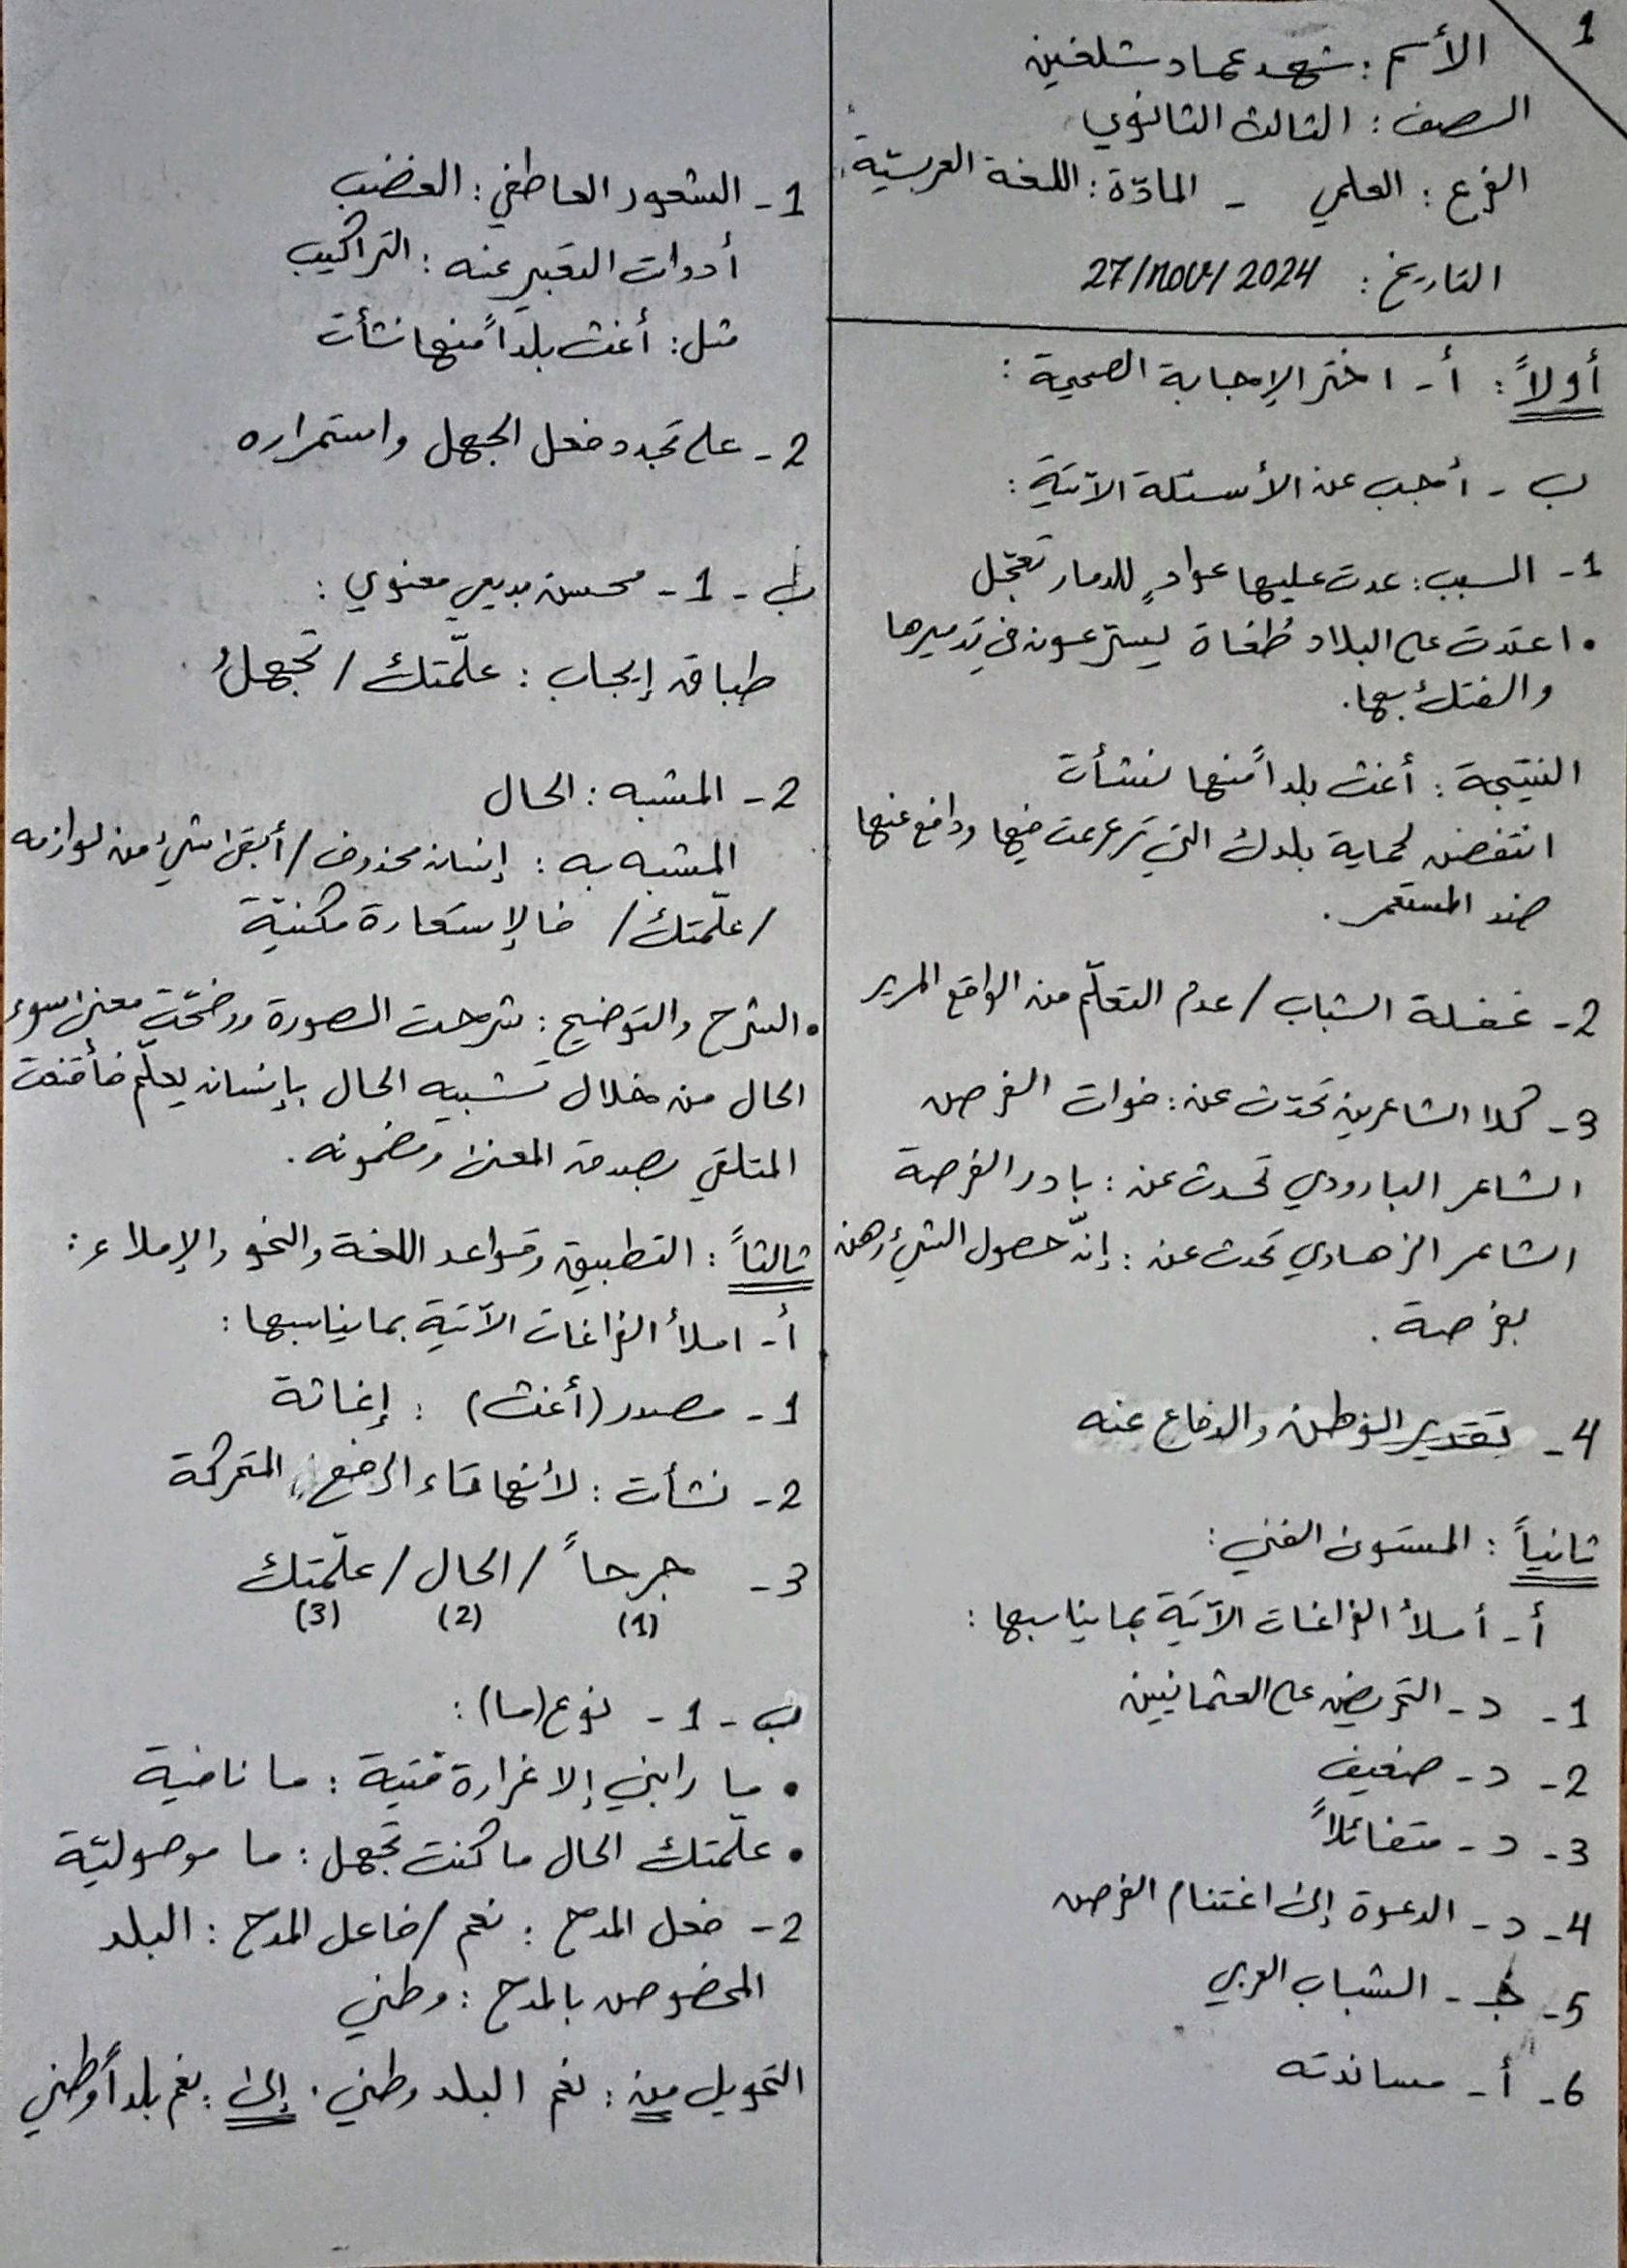 1
الأسم : شهد عماد شلغين
الصف : الثالث الثانوي
الفرع : العلمي - المادّة : اللغة العربيّة
التاريخ : 27/nov/2024
أولاً : أ - اختر الإجابة الصحيحة :
ب - أجب عن الأسئلة الآتية :
1- السبب : عدت عليها عوادٍ للدمار تعجّل
• اعتدت على البلاد طُغاة يسترعون في تدميرها
والفتك بها .
النتيجة : أغث بلداً منها نشأت
انتفض لحماية بلدك التي ترعرعت فيها ودافع عنها
ضد المستعمر .
2- غفلة الشباب / عدم التعلّم من الواقع المرير
3- كلا الشاعرين تحدّث عن : فوات الفرص
الشاعر البارودي تحدث عن : بادر الفرصة
الشاعر الزهاوي تحدث عن : إنّ حصول الشيء رهن
بفرصة .
4- تقدير الوطن والدفاع عنه
ثانياً : المستوى الفني :
أ - أملأ الفراغات الآتية بما يناسبها :
1- د - التحريض على العثمانيين
2- د - ضعيف
3- د - متفائلاً
4- د - الدعوة إلى اغتنام الفرص
5- - الشباب العربي
6- أ - مساندته
1- الشعور العاطفي : الغضب
أدوات التعبير عنه : التراكيب
مثل : أغث بلداً منها نشأت
2- على تجدد فعل الجهل واستمراره
ب - 1- محسن بديعي معنوي :
طباق إيجاب : علّمتك / تجهلُ
2- المشبه : الحال
المشبه به : إنسان محذوف / أبقى شيء من لوازمه
/ علّمتك / فالإستعارة مكنيّة
• الشرح والتوضيح : شرحت الصورة ووضّحت معنى سوء
الحال من خلال تشبيه الحال بإنسان يعلّم فأقنعت
المتلقي بصدق المعنى ومضمونه .
ثالثاً : التطبيق وقواعد اللغة والنحو والإملاء :
أ - املأ الفراغات الآتية بما يناسبها :
1- مصدر (أغث) : إغاثة
2- نشأت : لأنها تاء الرفع المتحركة
3- جرحاً / الحال / علّمتك
(1) (2) (3)
ب - 1- نوع (ما) :
• ما رابني إلا غرارة فتية : ما نافية
• علّمتك الحال ما كنت تجهل : ما موصوليّة
2- فعل المدح : نعم / فاعل المدح : البلد
المخصوص بالمدح : وطني
التحويل من : نعم البلد وطني . إلى : نعم بلداً وطني